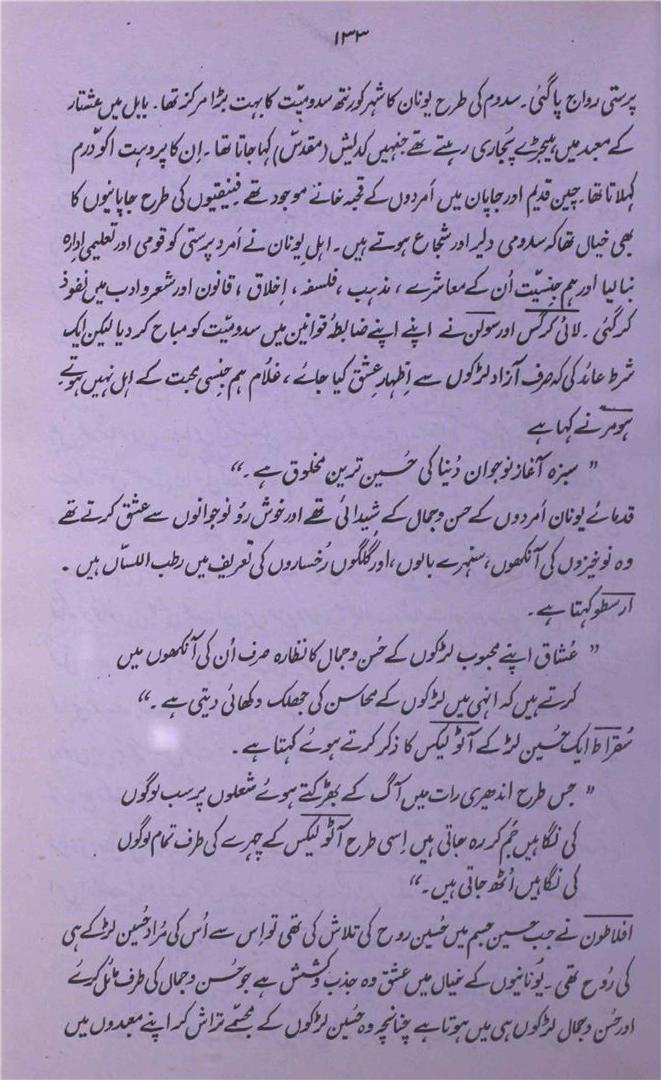 ۱۳۳
پرستی رواج پا گئی۔ سدوم کی طرح یونان کا شہر کورنتھ سدومیّت کا بہت بڑا مرکز تھا۔ بابل میں عشتار
کے معبد میں ہیجڑے پُجاری رہتے تھے جنہیں کدیش (مقدّس) کہا جاتا تھا۔ اِن کا پروہت اکوّرم
کہلاتا تھا۔ چین قدیم اور جاپان میں اَمردوں کے قحبہ خانے موجود تھے فنیقیوں کی طرح جاپانیوں کا
بھی خیال تھا کہ سدومی دلیر اور شجاع ہوتے ہیں۔ اہلِ یونان نے اَمرد پرستی کو قومی اور تعلیمی اِدارہ
بنا لیا اور ہم جنسیّت اُن کے معاشرے ، مذہب ، فلسفہ ، اِخلاق ، قانون اور شعر و ادب میں نفوذ
کر گئی۔ لائی کرگس اور سولن نے اپنے اپنے ضابطۂ قوانین میں سدومیّت کو مباح کر دیا لیکن ایک
شرط عائد کی کہ صرف آزاد لڑکوں سے اِظہارِ عشق کیا جائے ، غلام ہم جنسی محبت کے اہل نہیں ہوتے
ہومر نے کہا ہے
” سبزہ آغاز نوجوان دُنیا کی حسین ترین مخلوق ہے۔“
قدمائے یونان اَمردوں کے حسن و جمال کے شیدائی تھے اور خوش رُو نوجوانوں سے عشق کرتے تھے
وہ نوخیزوں کی آنکھوں ، سنہرے بالوں ، اور گلگوں رُخساروں کی تعریف میں رطب اللسّان ہیں۔
ارسطو کہتا ہے۔
” عُشاق اپنے محبوب لڑکوں کے حُسن و جمال کا نظارہ صرف اُن کی آنکھوں میں
کرتے ہیں کہ انہی میں لڑکوں کے محاسن کی جھلک دکھائی دیتی ہے۔“
سُقراط ایک حسین لڑکے آٹو لیکس کا ذکر کرتے ہوئے کہتا ہے۔
” جس طرح اندھیری رات میں آگ کے بھڑکتے ہوئے شعلوں پر سب لوگوں
کی نگاہیں جُم کر رہ جاتی ہیں اِسی طرح آٹو لیکس کے چہرے کی طرف تمام لوگوں
کی نگاہیں اُٹھ جاتی ہیں۔“
افلاطون نے جب حسین جسم میں حسین روح کی تلاش کی تھی تو اِس سے اُس کی مُراد حُسین لڑکے ہی
کی رُوح تھی۔ یُونانیوں کے خیال میں عشق وہ جذب و کشش ہے جو حُسن و جمال کی طرف مائل کرے
اور حُسن و جمال لڑکوں ہی میں ہوتا ہے چنانچہ وہ حُسین لڑکوں کے مجسمّے تراش کر اپنے معبدوں میں